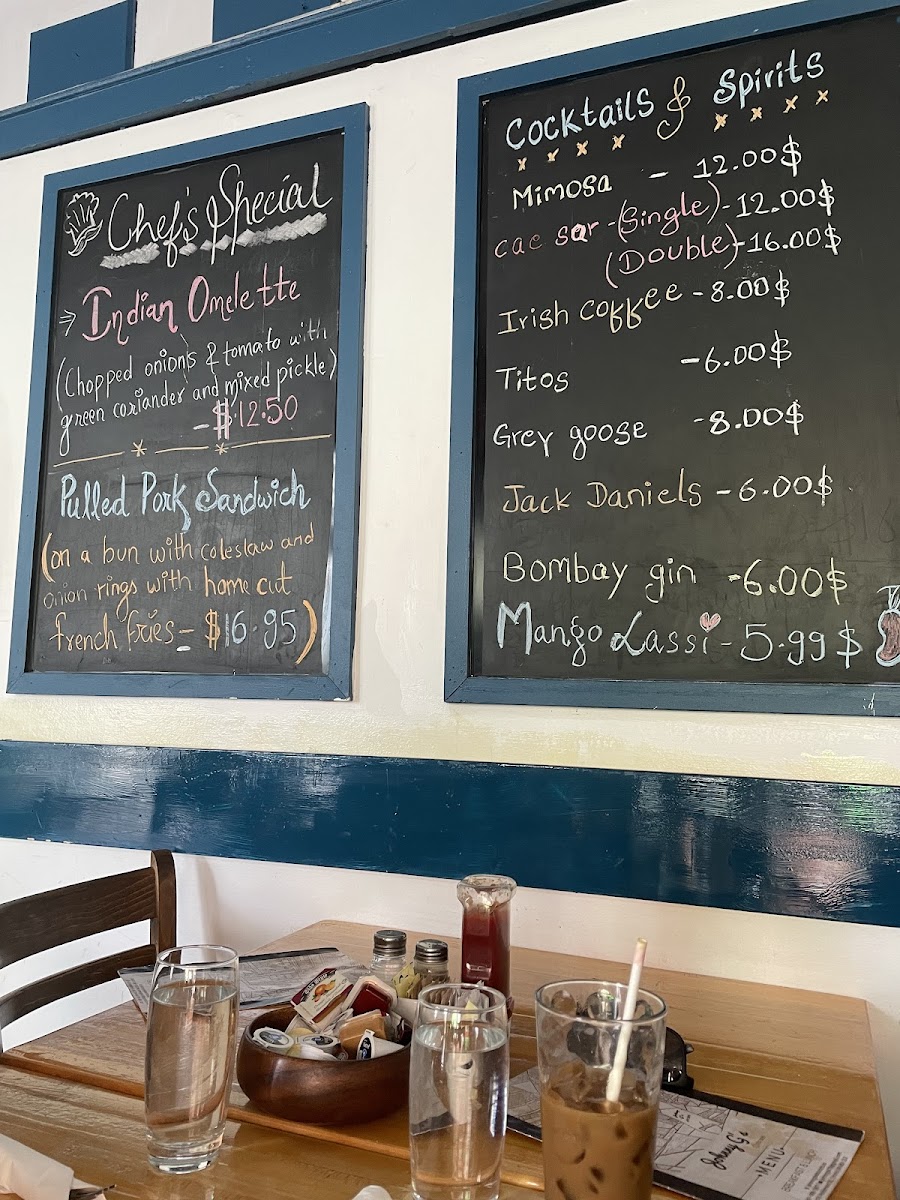 Chef's Special
Indian Omelette
(Chopped onions & tomato with
green coriander and mixed pickle)
- $12.50
Pulled Pork Sandwich
(on a bun with coleslaw and
onion rings with home cut
french fries - $16.95)
Cocktails & Spirits
x x x x x x x x
Mimosa - 12.00$
caesar - (Single) - 12.00$
(Double) - 16.00$
Irish coffee - 8.00$
Titos - 6.00$
Grey goose - 8.00$
Jack Daniels - 6.00$
Bombay gin - 6.00$
Mango Lassi - 5.99$
Johnny G's
MENU
BREAKFAST & LUNCH